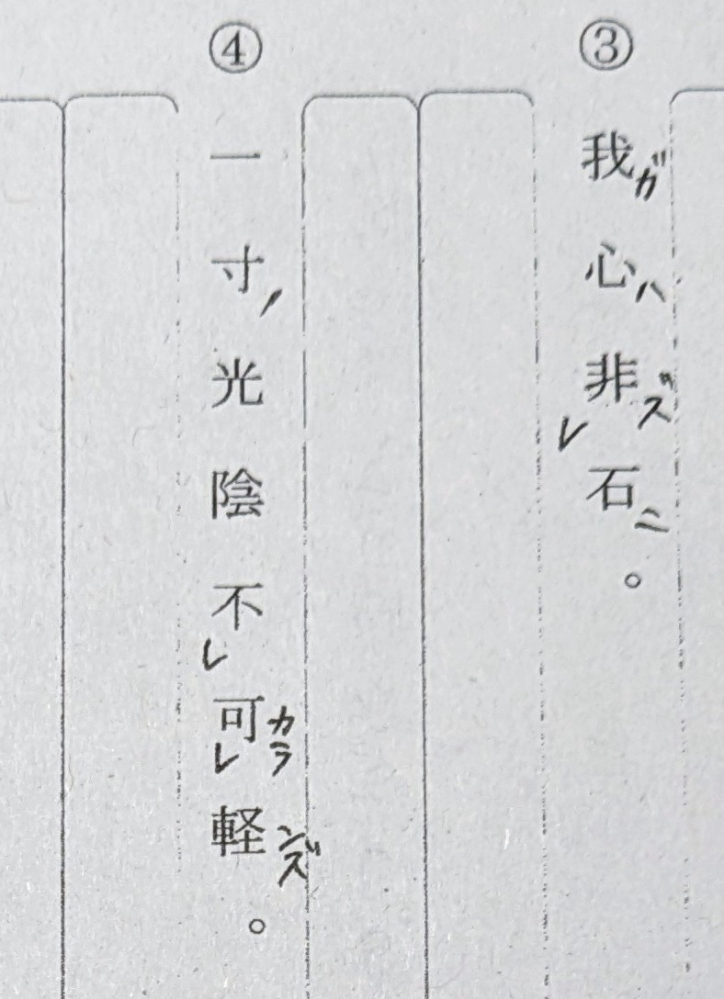 ③
我ガ心ハ非ズレ石ニ。
④
一寸ノ光陰不レ可カラレ軽ンズ。